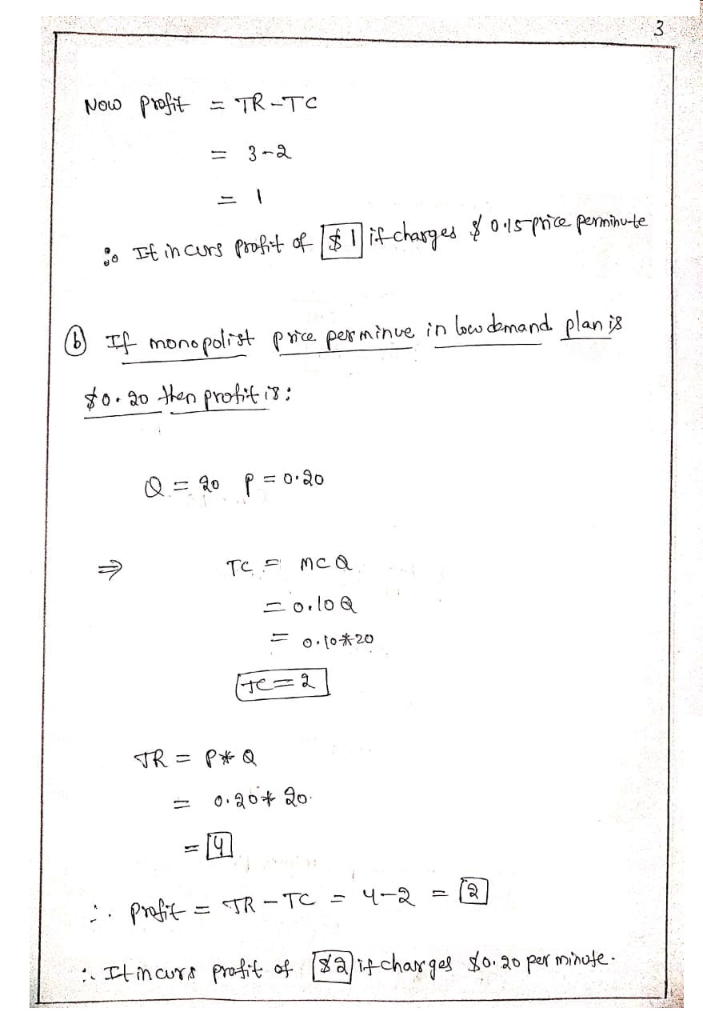 3
Now profit = TR-TC
= 3-2
= 1
∴ It incurs profit of $1 if charges $0.15 price perminute
(b) If monopolist price per minue in low demand plan is
$0.20 then profit is:
Q = 20 P = 0.20
⇒ TC = MCQ
= 0.10Q
= 0.10*20
TC=2
TR = P*Q
= 0.20*20.
= 4
∴ Profit = TR-TC = 4-2 = 2
∴ It incurs profit of $2 if charges $0.20 per minute.